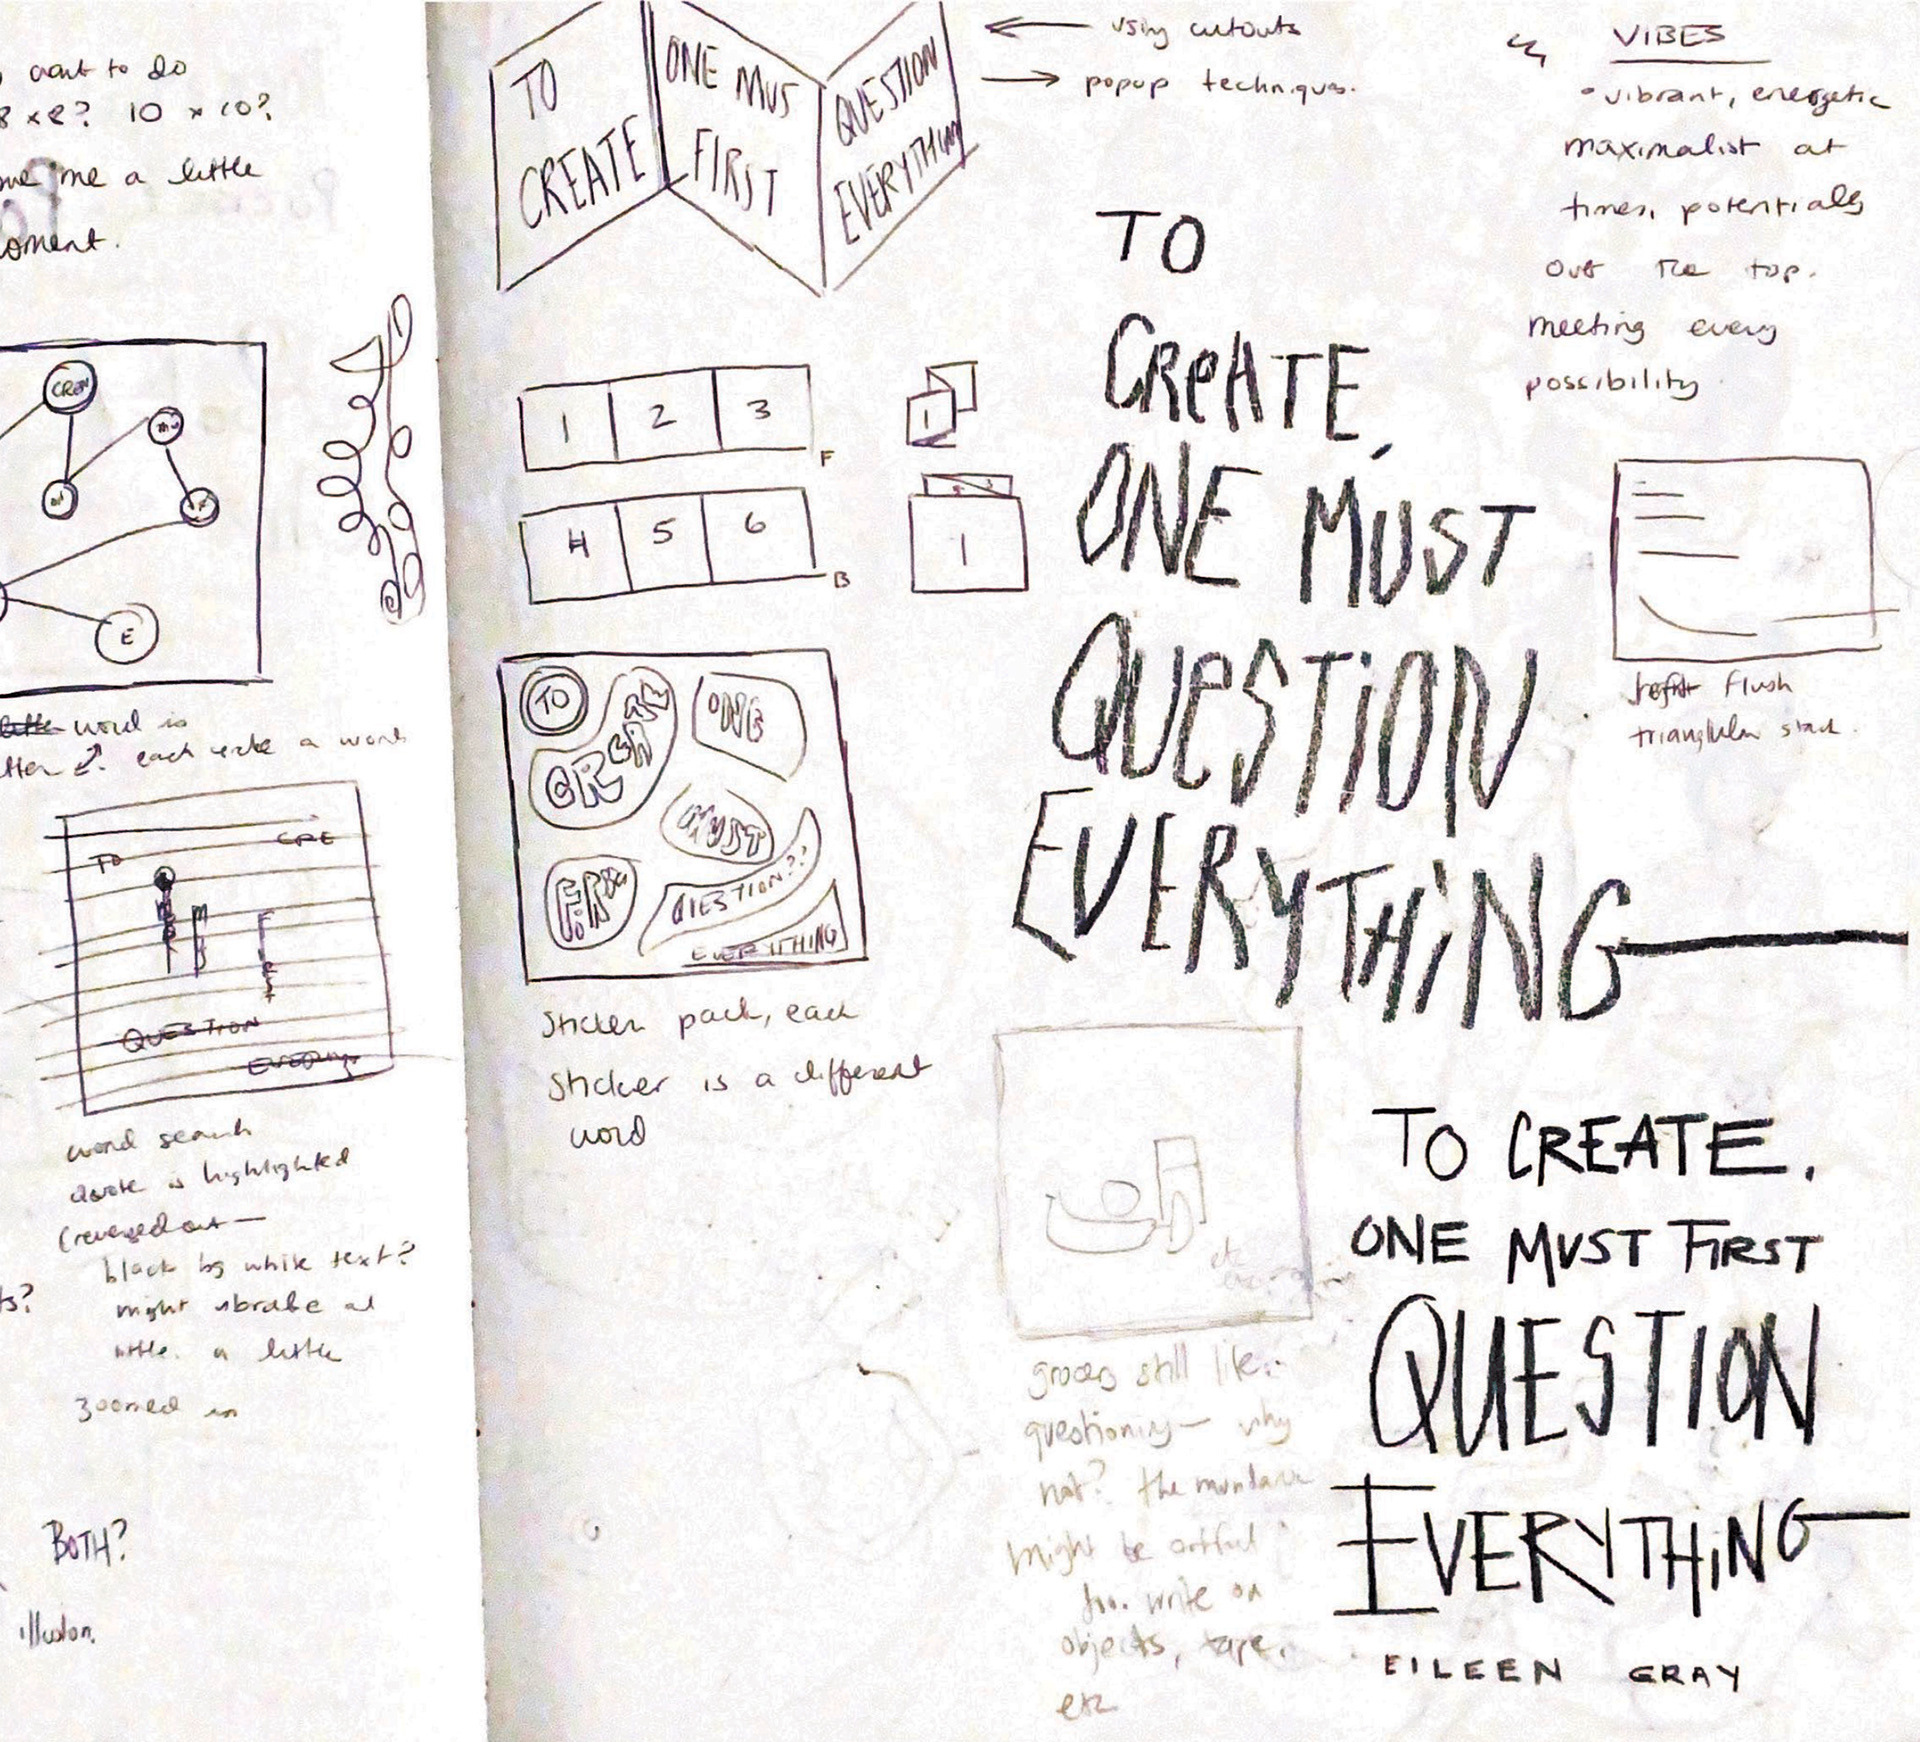 want to do
10 x 10?
me a little
TO
CREATE
ONE MUS
FIRST
QUESTION
EVERYTHING
using cutouts
popup techniques.
VIBES
vibrant, energetic
maximalist at
times, potentially
out the top.
meeting every
possibility
CREA
E
word is
each a word
TO
CRE
QUESTION
word search
quote is highlighted
(reversed out —
black bg white text?
might vibrate a
little. a little
zoomed in
BOTH?
illusion.
1 2 3
F
4 5 6
B
1
1
TO
CREATE
ONE
MUST
QUESTION??
EVERYTHING
Sticker pack, each
Sticker is a different
word
TO
CREATE,
ONE MUST
QUESTION
EVERYTHING
flush
triangular stack.
grocery still life.
questioning — why
not? the mundane
might be artful
too. write on
objects, tape,
etc
TO CREATE,
ONE MUST FIRST
QUESTION
EVERYTHING
EILEEN GRAY